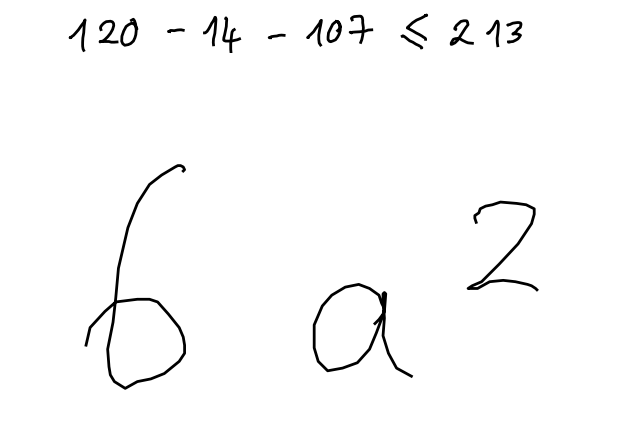 120 - 14 - 107 ≤ 213
6 a²